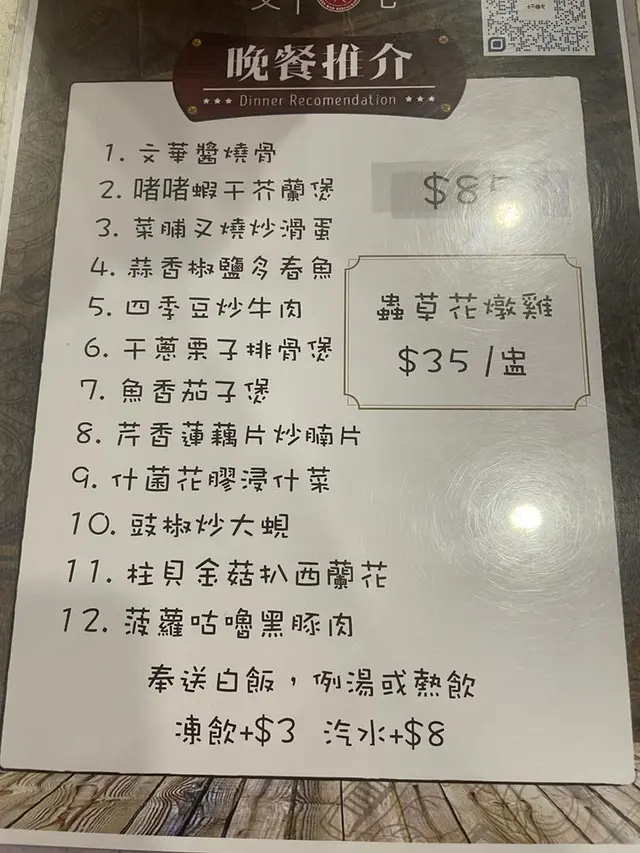 晚餐推介
Dinner Recomendation
1. 文華醬燒骨
2. 啫啫蝦干芥蘭煲
3. 菜脯叉燒炒滑蛋
4. 蒜香椒鹽多春魚
5. 四季豆炒牛肉
6. 干蔥栗子排骨煲
7. 魚香茄子煲
8. 芹香蓮藕片炒腩片
9. 什菌花膠浸什菜
10. 豉椒炒大蜆
11. 柱貝金菇扒西蘭花
12. 菠蘿咕嚕黑豚肉
$85
蟲草花燉雞
$35/盅
奉送白飯，例湯或熱飲
凍飲+$3 汽水+$8